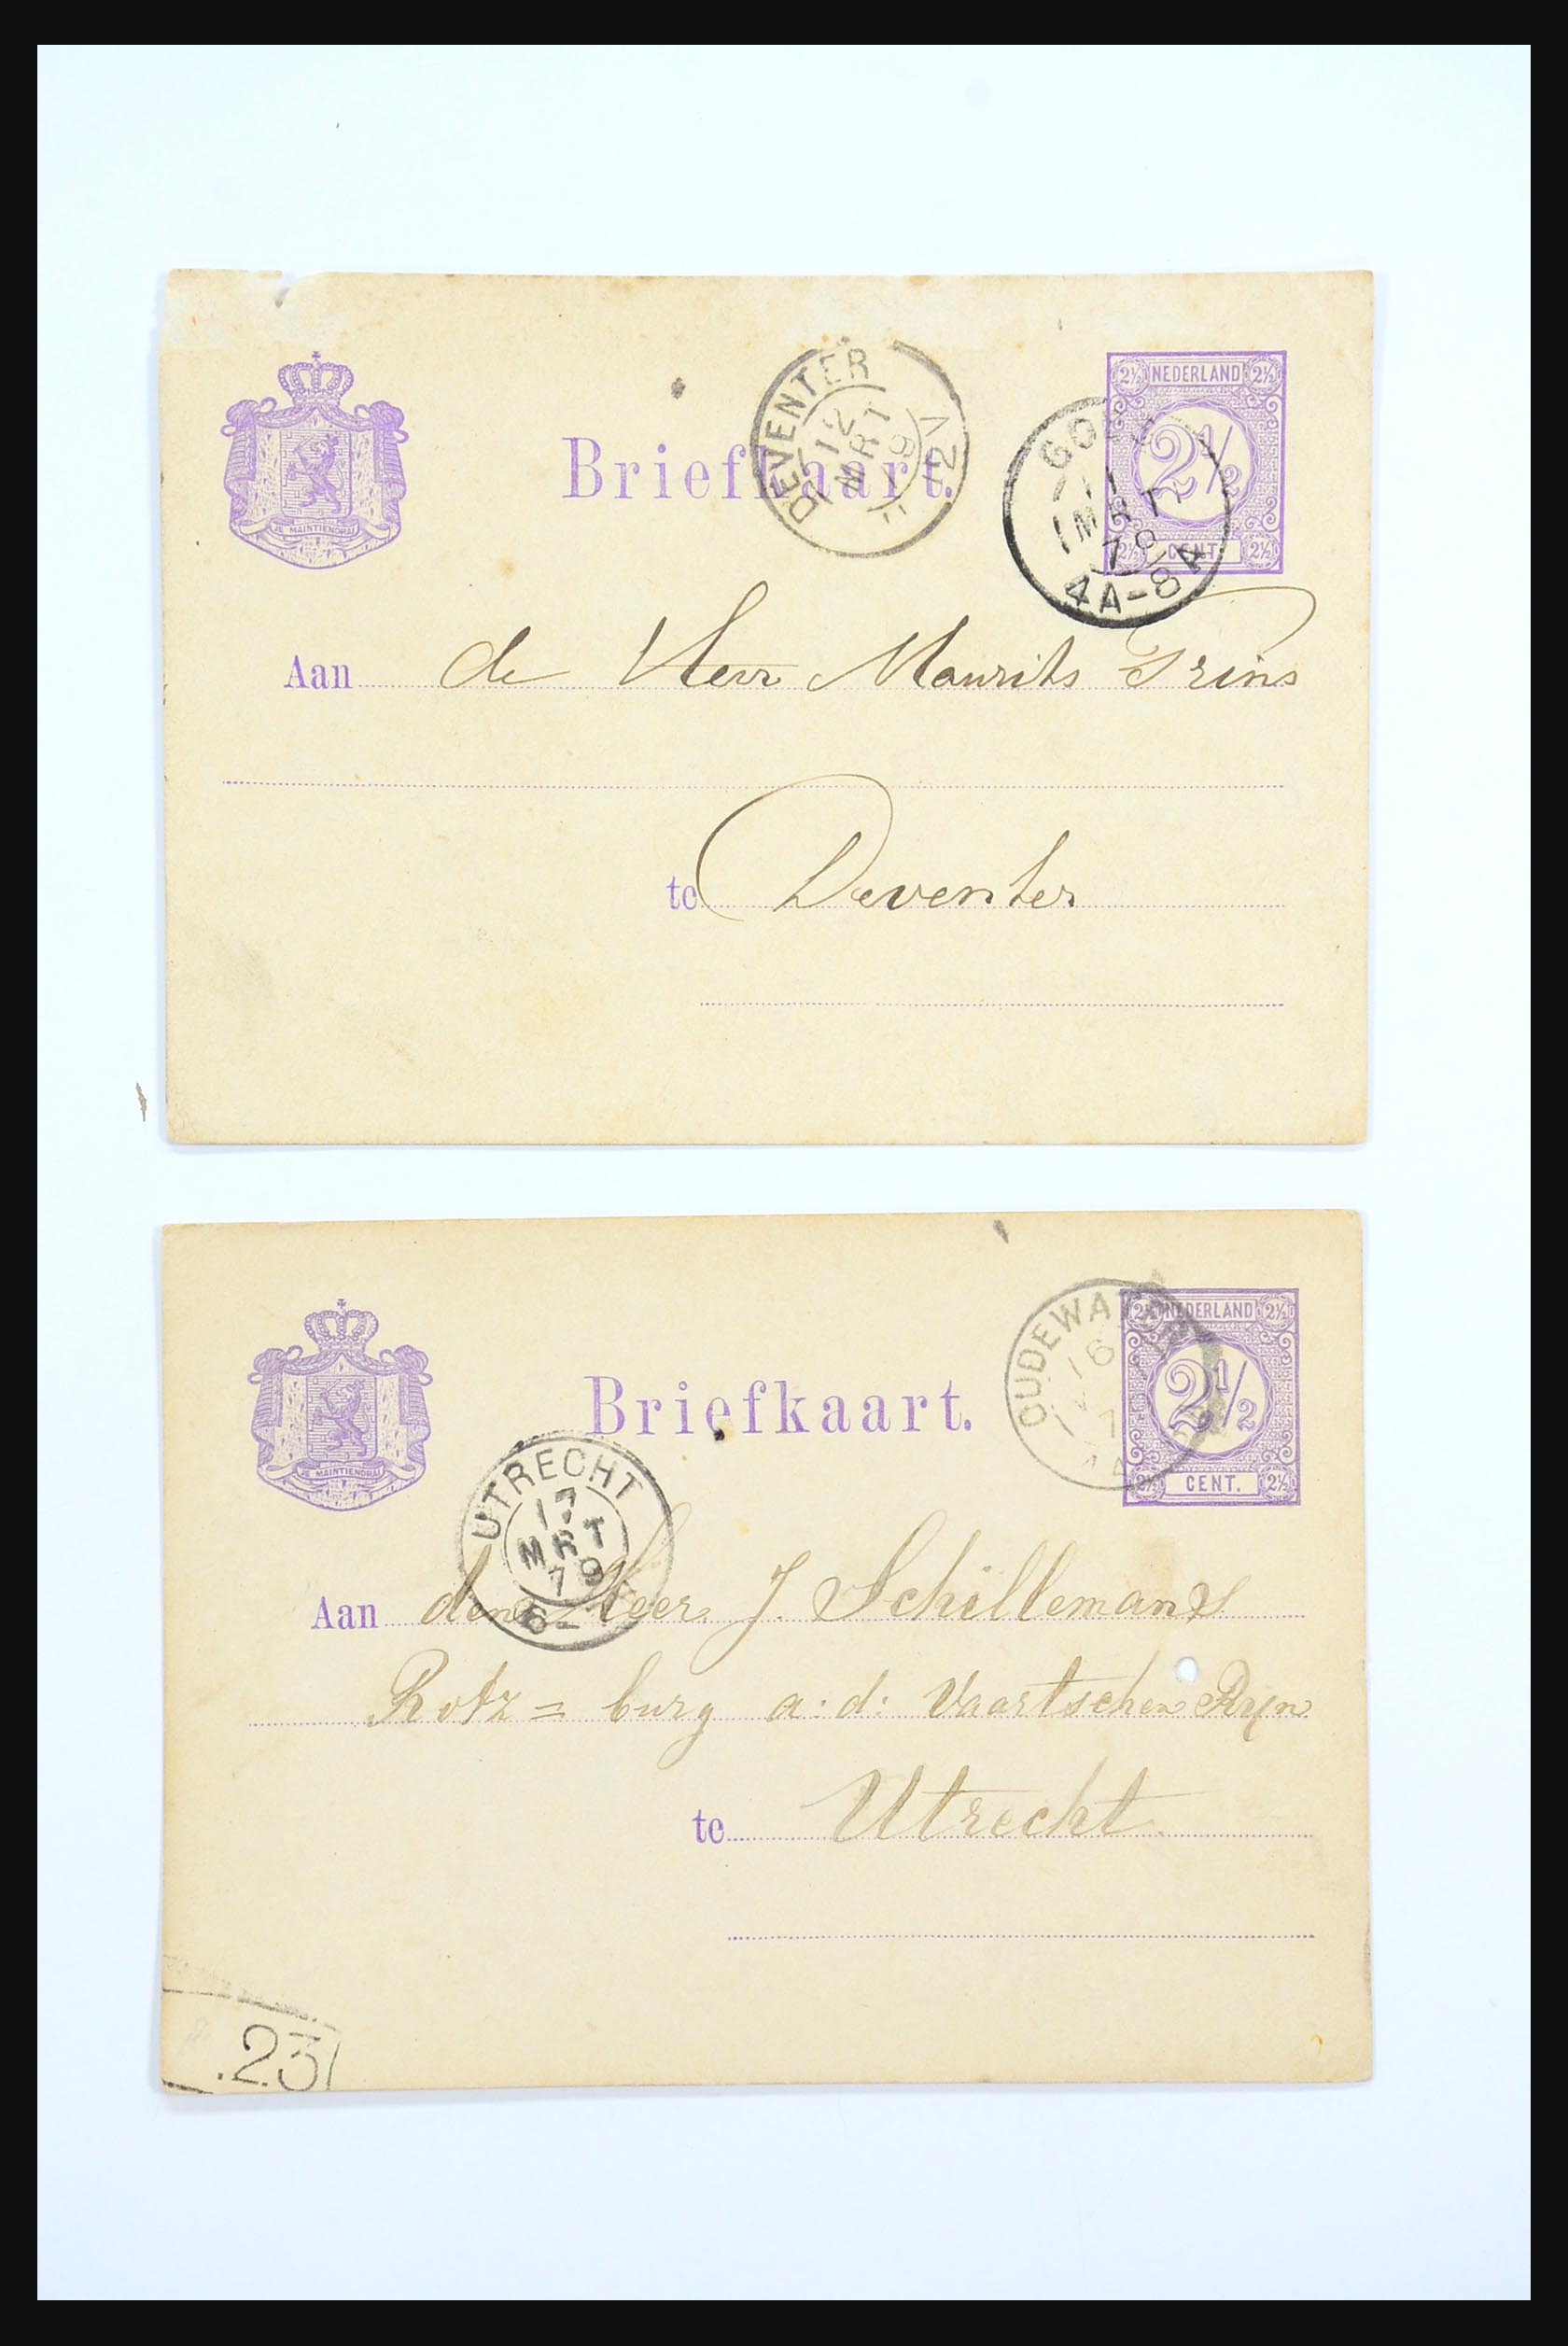 DEVENTER
12
MRT
79
-12V
2½ NEDERLAND 2½
2½
2½ CENT. 2½
11
MRT
79
4A-8A
JE MAINTIENDRAI
Briefkaart.
Aan de Heer Maurits Prins
te Deventer
2½ NEDERLAND 2½
2½
2½ CENT. 2½
OUDEWATER
16
JE MAINTIENDRAI
Briefkaart.
UTRECHT
17
MRT
79
Aan den Heer J. Schillemans
Rotz = burg a: d: Vaartschen Rijn
te Utrecht
.23